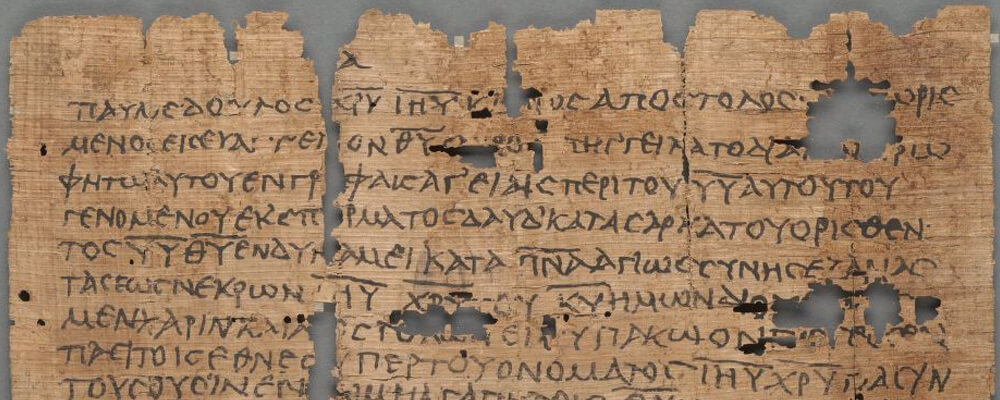 Α
ΠΑΥΛΟϹ ΔΟΥΛΟϹ Χ̅Ρ̅Υ̅ Ι̅Η̅Υ̅ ΑΠΟϹΤΟΛΟϹ ΩΡΙϹ
ΜΕΝΟϹ ΕΙϹ ΕΥΑΓΓΕΛΙΟΝ Θ̅Υ̅ ΤΗΓΓΕΙΛΑΤΟ ΔΙΑ ΡΩ
ΦΗΤΩ ΑΥΤΟΥ ΕΝ ΓΡΑΦΑΙϹ ΑΓΕΙΑΙϹ ΠΕΡΙ ΤΟΥ Υ̅Υ̅ ΑΥΤΟΥ ΤΟΥ
ΓΕΝΟΜΕΝΟΥ ΕΚ ϹΠΕΡΜΑΤΟϹ ΔΑΥΔ' ΚΑΤΑ ϹΑΡΚΑ ΤΟΥ ΟΡΙϹΘΕΝ
ΤΟϹ Υ̅Υ̅ Θ̅Υ̅ ΕΝ ΔΥΝΑΜΕΙ ΚΑΤΑ Π̅Ν̅Α̅ ΑΓΙΩϹϹΥΝΗϹ ΕΞ ΑΝΑϹ
ΤΑϹΕΩϹ ΝΕΚΡΩΝ Ι̅Η̅Υ̅ Χ̅Ρ̅Υ̅ ΤΟΥ Κ̅Υ̅ ΗΜΩΝ
ΜΕΝ ΧΑΡΙΝ ΚΑΙ ΑΠΟϹΤΟΛΗΝ ΕΙϹ ΥΠΑΚΩΟΝ
ΠΑϹΙ ΤΟΙϹ ΕΘΝΕϹΙ ΥΠΕΡ ΤΟΥ ΟΝΟΜΑΤΟϹ Ι̅Η̅Υ̅ Χ̅Ρ̅Υ̅ ΠΑϹΙΝ
ΤΟΙϹ ΟΥϹΙΝ ΕΝ